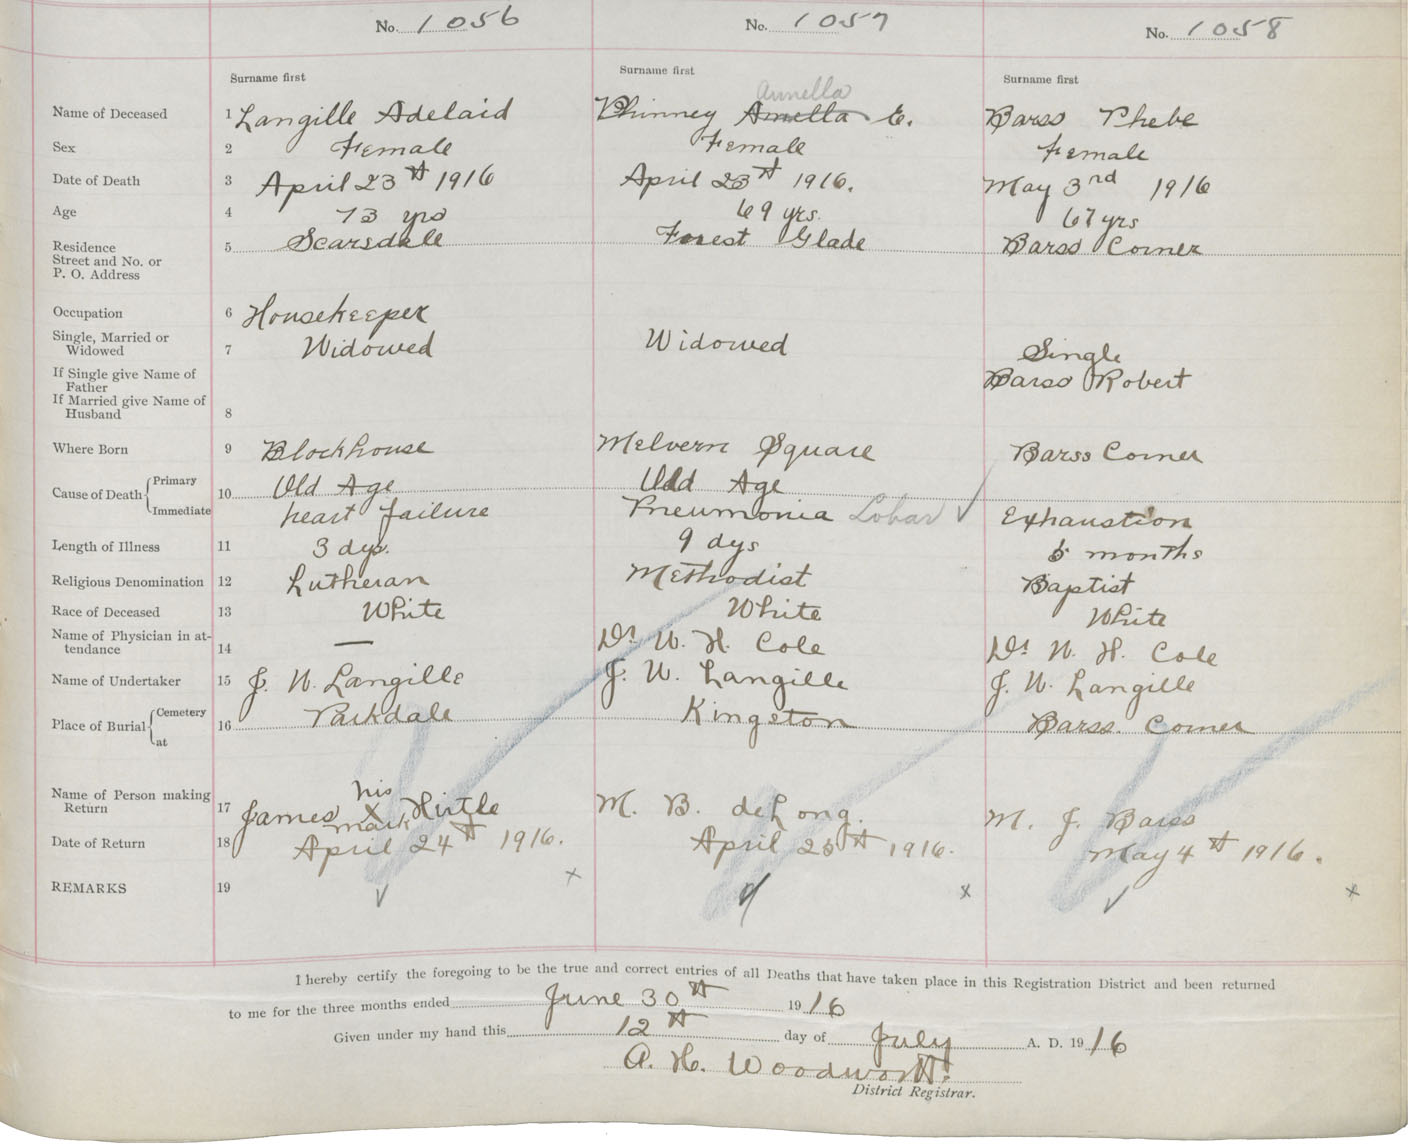 No. 1056 No. 1057 No. 1058
Surname first Surname first Surname first
Annella
Name of Deceased 1 Langille Adelaid Phinney Amella E. Barss Phebe
Sex 2 Female Female Female
Date of Death 3 April 23th 1916 April 23th 1916. May 3rd 1916
Age 4 73 yrs 69 yrs. 67 yrs
Residence 5 Scarsdale Forest Glade Barss Corner
Street and No. or
P. O. Address
Occupation 6 Housekeeper
Single, Married or
Widowed 7 Widowed Widowed Single
If Single give Name of
Father Barss Robert
If Married give Name of
Husband 8
Where Born 9 Blockhouse Melvern Square Barss Corner
Cause of Death { Primary 10 Old Age Old Age
Immediate heart failure Pneumonia Lobar ✓ Exhaustion
Length of Illness 11 3 dys. 9 dys 5 months
Religious Denomination 12 Lutheran Methodist Baptist
Race of Deceased 13 White White White
Name of Physician in at-
tendance 14 — Dr W. H. Cole Dr W. H. Cole
Name of Undertaker 15 J. W. Langille J. W. Langille J. W. Langille
Place of Burial { Cemetery 16 Parkdale Kingston Barss. Corner
at
Name of Person making
Return 17 James his X mark Hirtle M. B. deLong. M. J. Barss
Date of Return 18 April 24th 1916. April 25th 1916. May 4th 1916.
REMARKS 19 ✓ x ✓ x ✓ x
I hereby certify the foregoing to be the true and correct entries of all Deaths that have taken place in this Registration District and been returned
to me for the three months ended June 30th 1916
Given under my hand this 12th day of July A. D. 1916
A. H. Woodworth.
District Registrar.